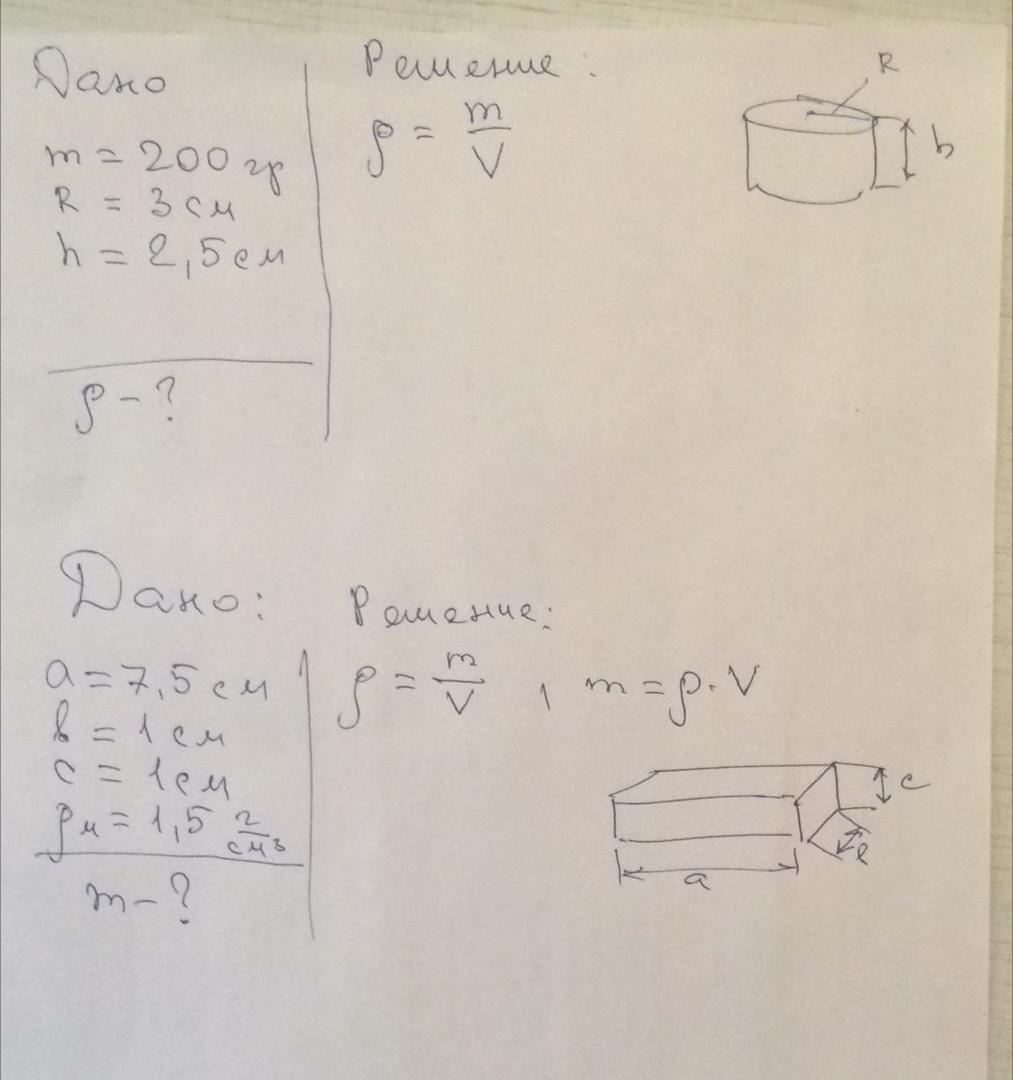 Дано
m = 200 гр
R = 3 см
h = 2,5 см
ρ - ?
Решение:
ρ = m/V
R
h
Дано:
a = 7,5 см
в = 1 см
c = 1 см
ρм = 1,5 г/см³
m - ?
Решение:
ρ = m/V , m = ρ · V
c
в
a